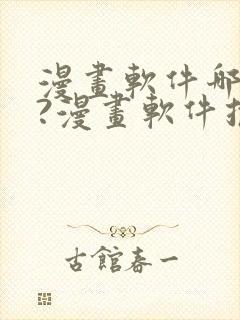 漫畫軟件哪
?漫畫軟件推
古館春一